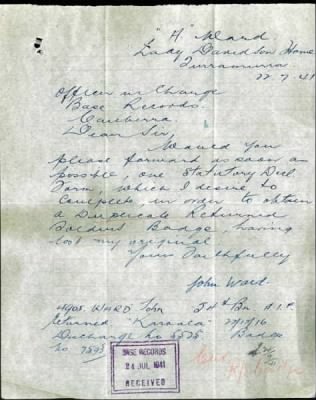 "A" Ward
Lady Davidson Home
Turramurra
22 7 41
Officer in Charge
Base Records
Canberra
Dear Sir,
Would you
please forward as soon as
possible, one Statutory Decl
Form, which I desire to
complete, in order to obtain
a Duplicate Returned
Soldiers Badge, having
lost my original
Yours Faithfully
John Ward.
4905. WARD John 54th Bn. A.I.F.
Returned "Karoola"
Discharge No 5525 Badge
No 7593
BASE RECORDS
24 JUL 1941
RECEIVED